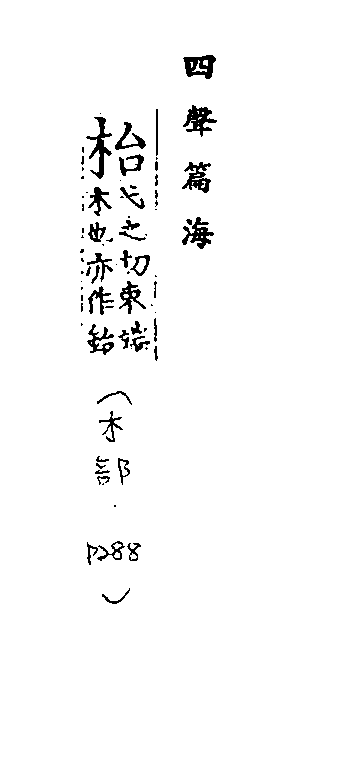 四聲篇海
枱弋之切耒端
木也亦作鈶
（木部．P288）